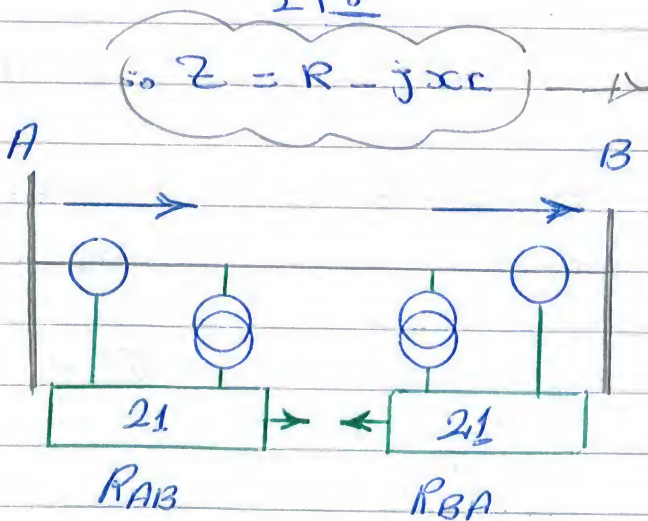 ∴ Z = R - jxc
A B
21 21
RAB RBA